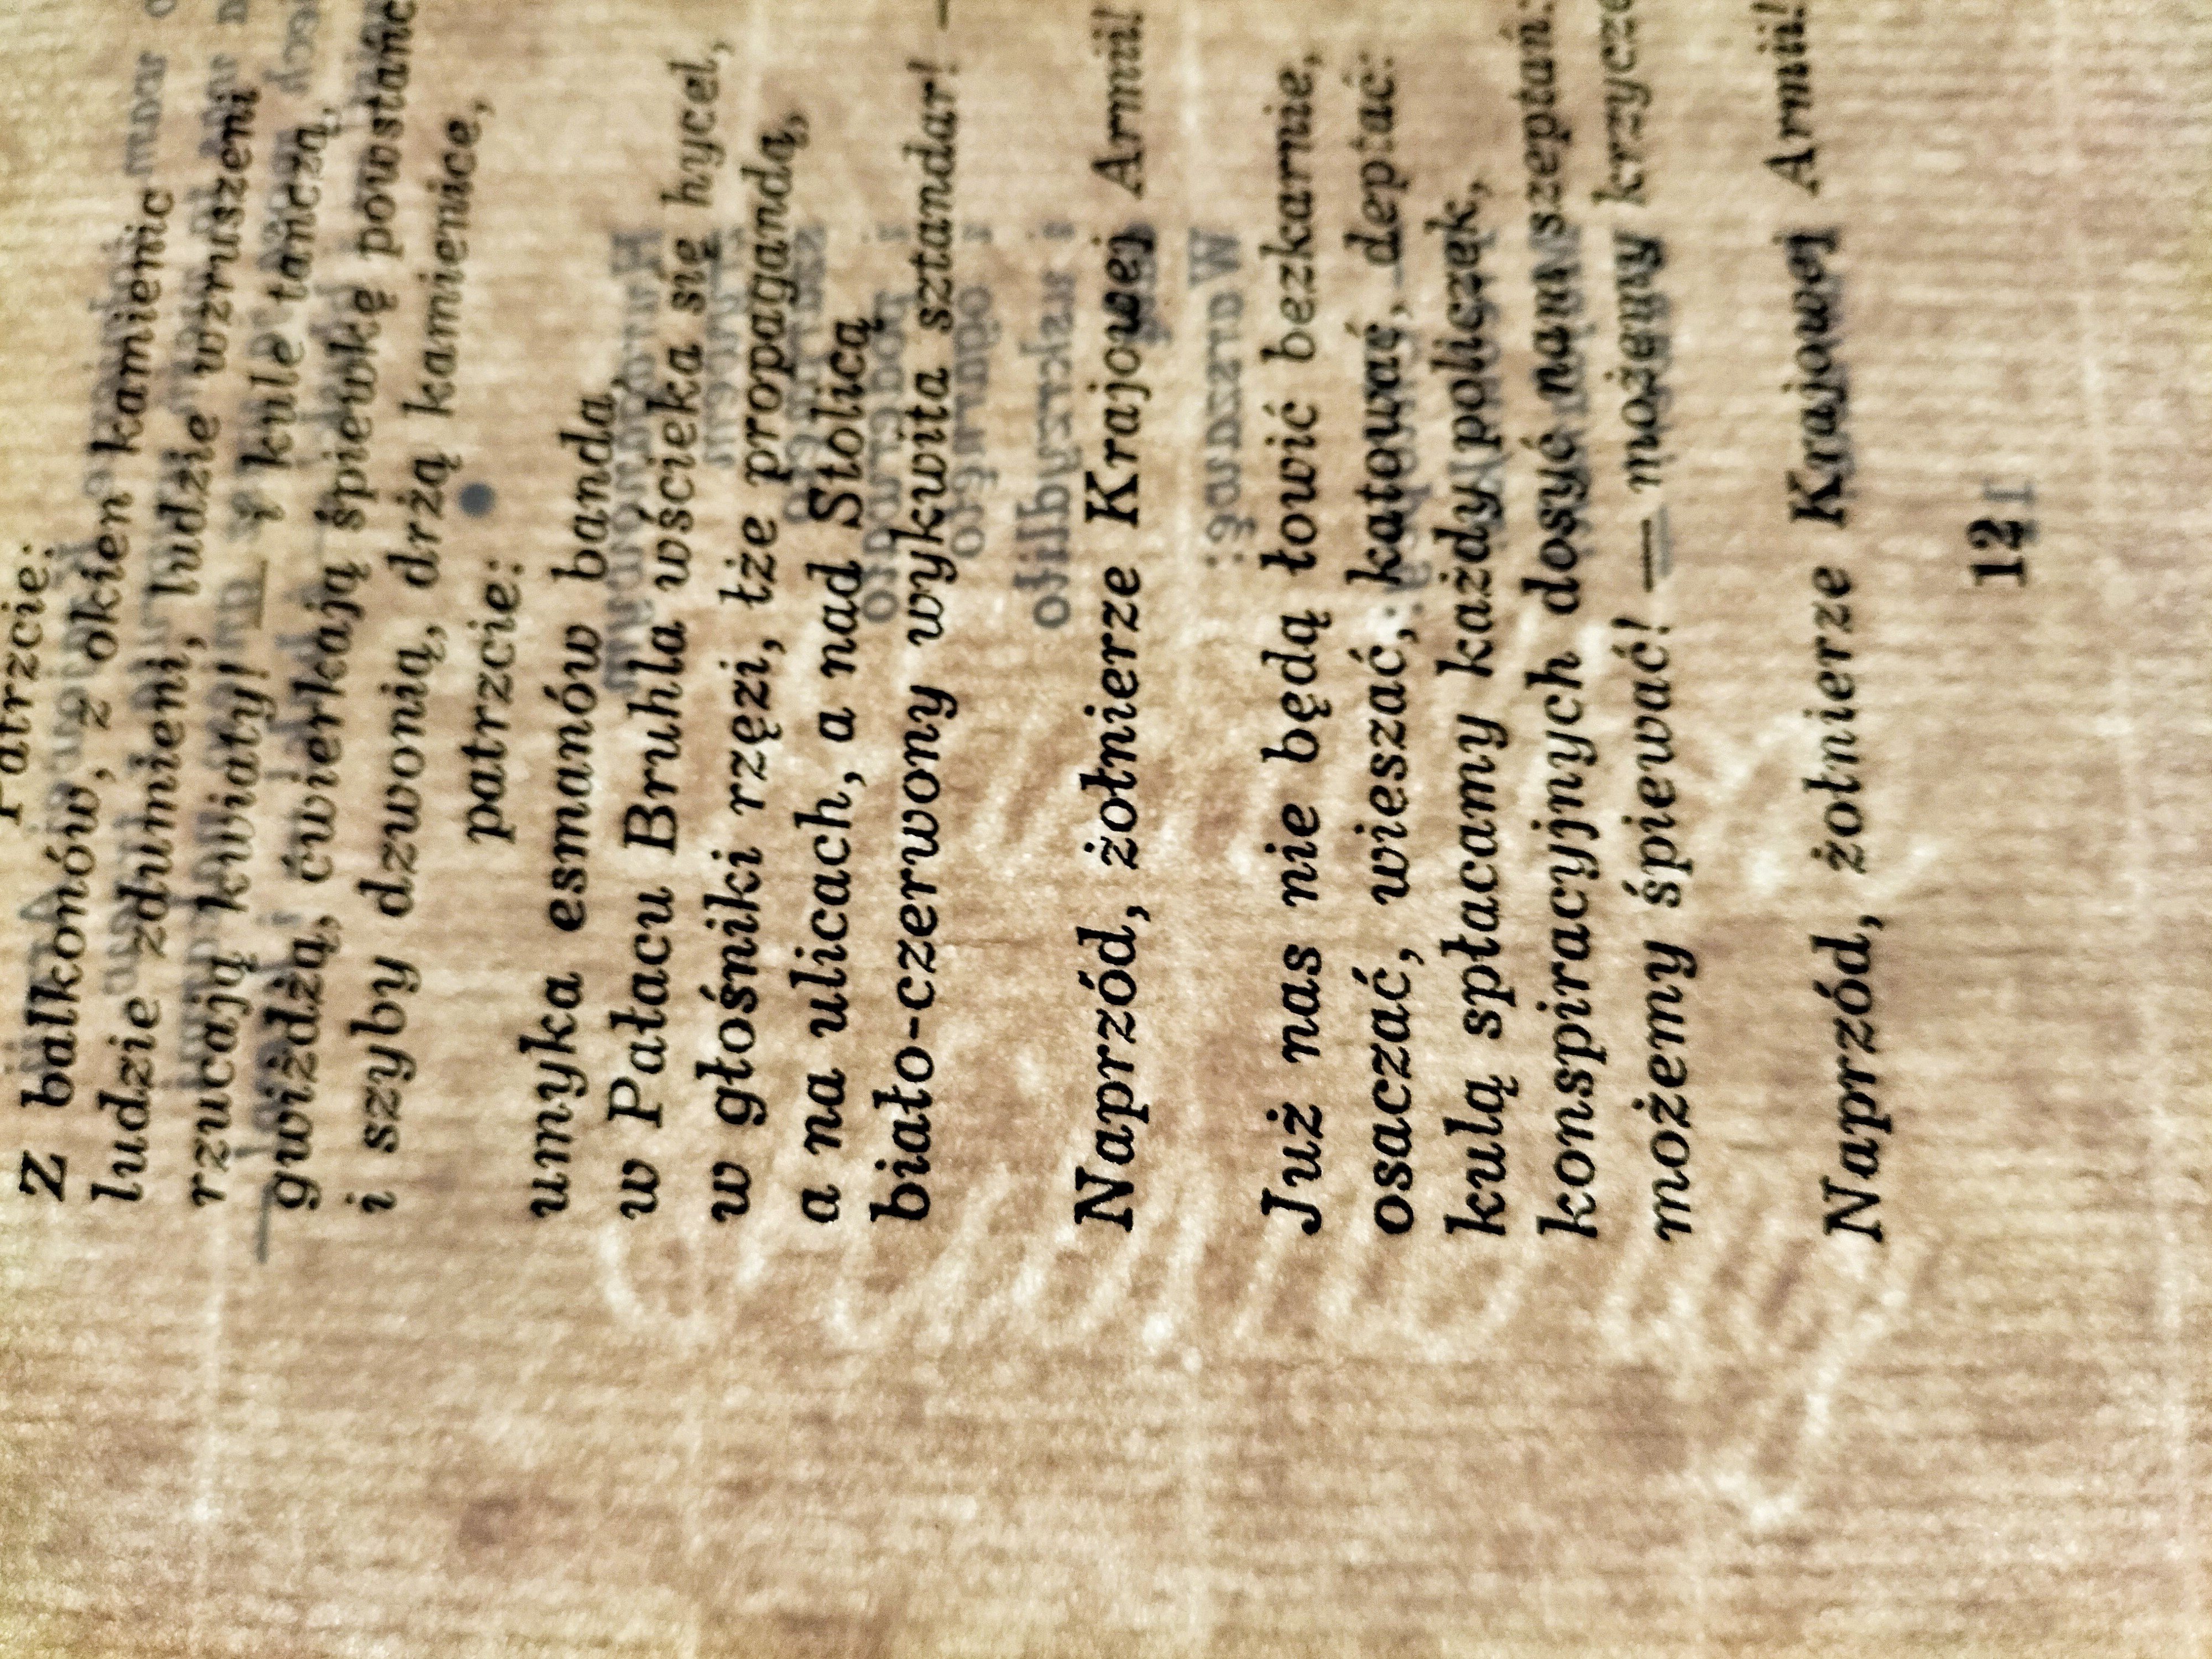 Patrzcie:
Z balkonów, z okien kamienic
ludzie zdumieni, ludzie wzruszeni
rzucają kwiaty! — A kule tańczą,
gwiżdżą, ćwierkają śpiewkę powstańc
i szyby dzwonią, drżą kamienice,
patrzcie:
umyka esmanów banda,
w Pałacu Bruhla wścieka się hycel,
w głośniki rzęzi, łże propagandą,
a na ulicach, a nad Stolicą
biało-czerwony wykwita sztandar! —
Naprzód, żołnierze Krajowej Armii!
Już nas nie będą łowić bezkarnie,
osaczać, wieszać, katować, deptać:
kulą spłacamy każdy policzek,
konspiracyjnych dosyć nam szeptań:
możemy śpiewać! — możemy krzycze
Naprzód, żołnierze Krajowej Armii!
12